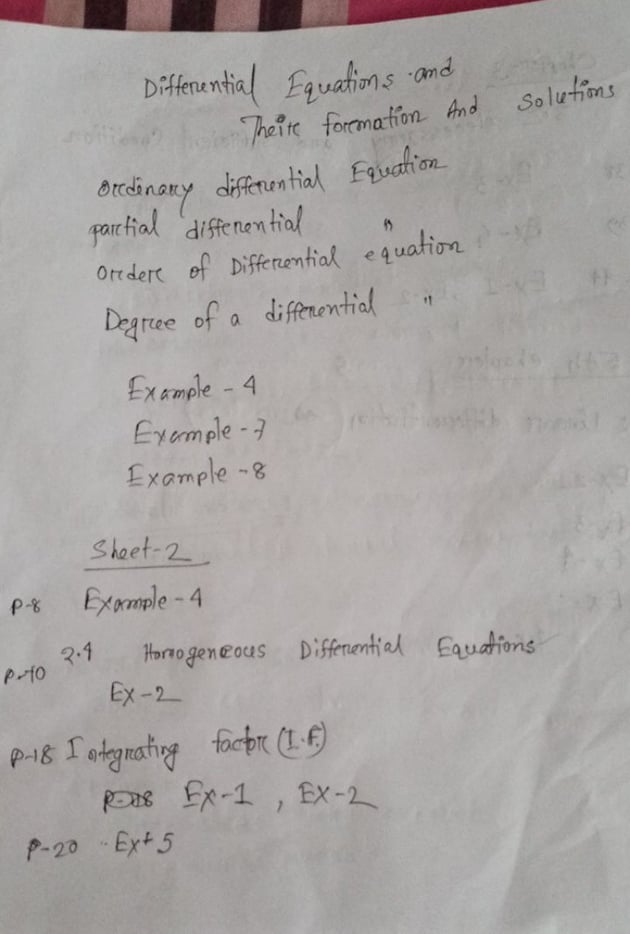 Differential Equations and
Their formation And Solutions
Ordinary differential Equation
partial differential "
Order of Differential equation
Degree of a differential "
Example - 4
Example - 7
Example - 8
Sheet-2
P-8 Example - 4
2.4 Homogeneous Differential Equations
P-10
Ex-2
P-18 Integrating factor (I.F.)
Ex-1 , Ex-2
P-20 Ex-5